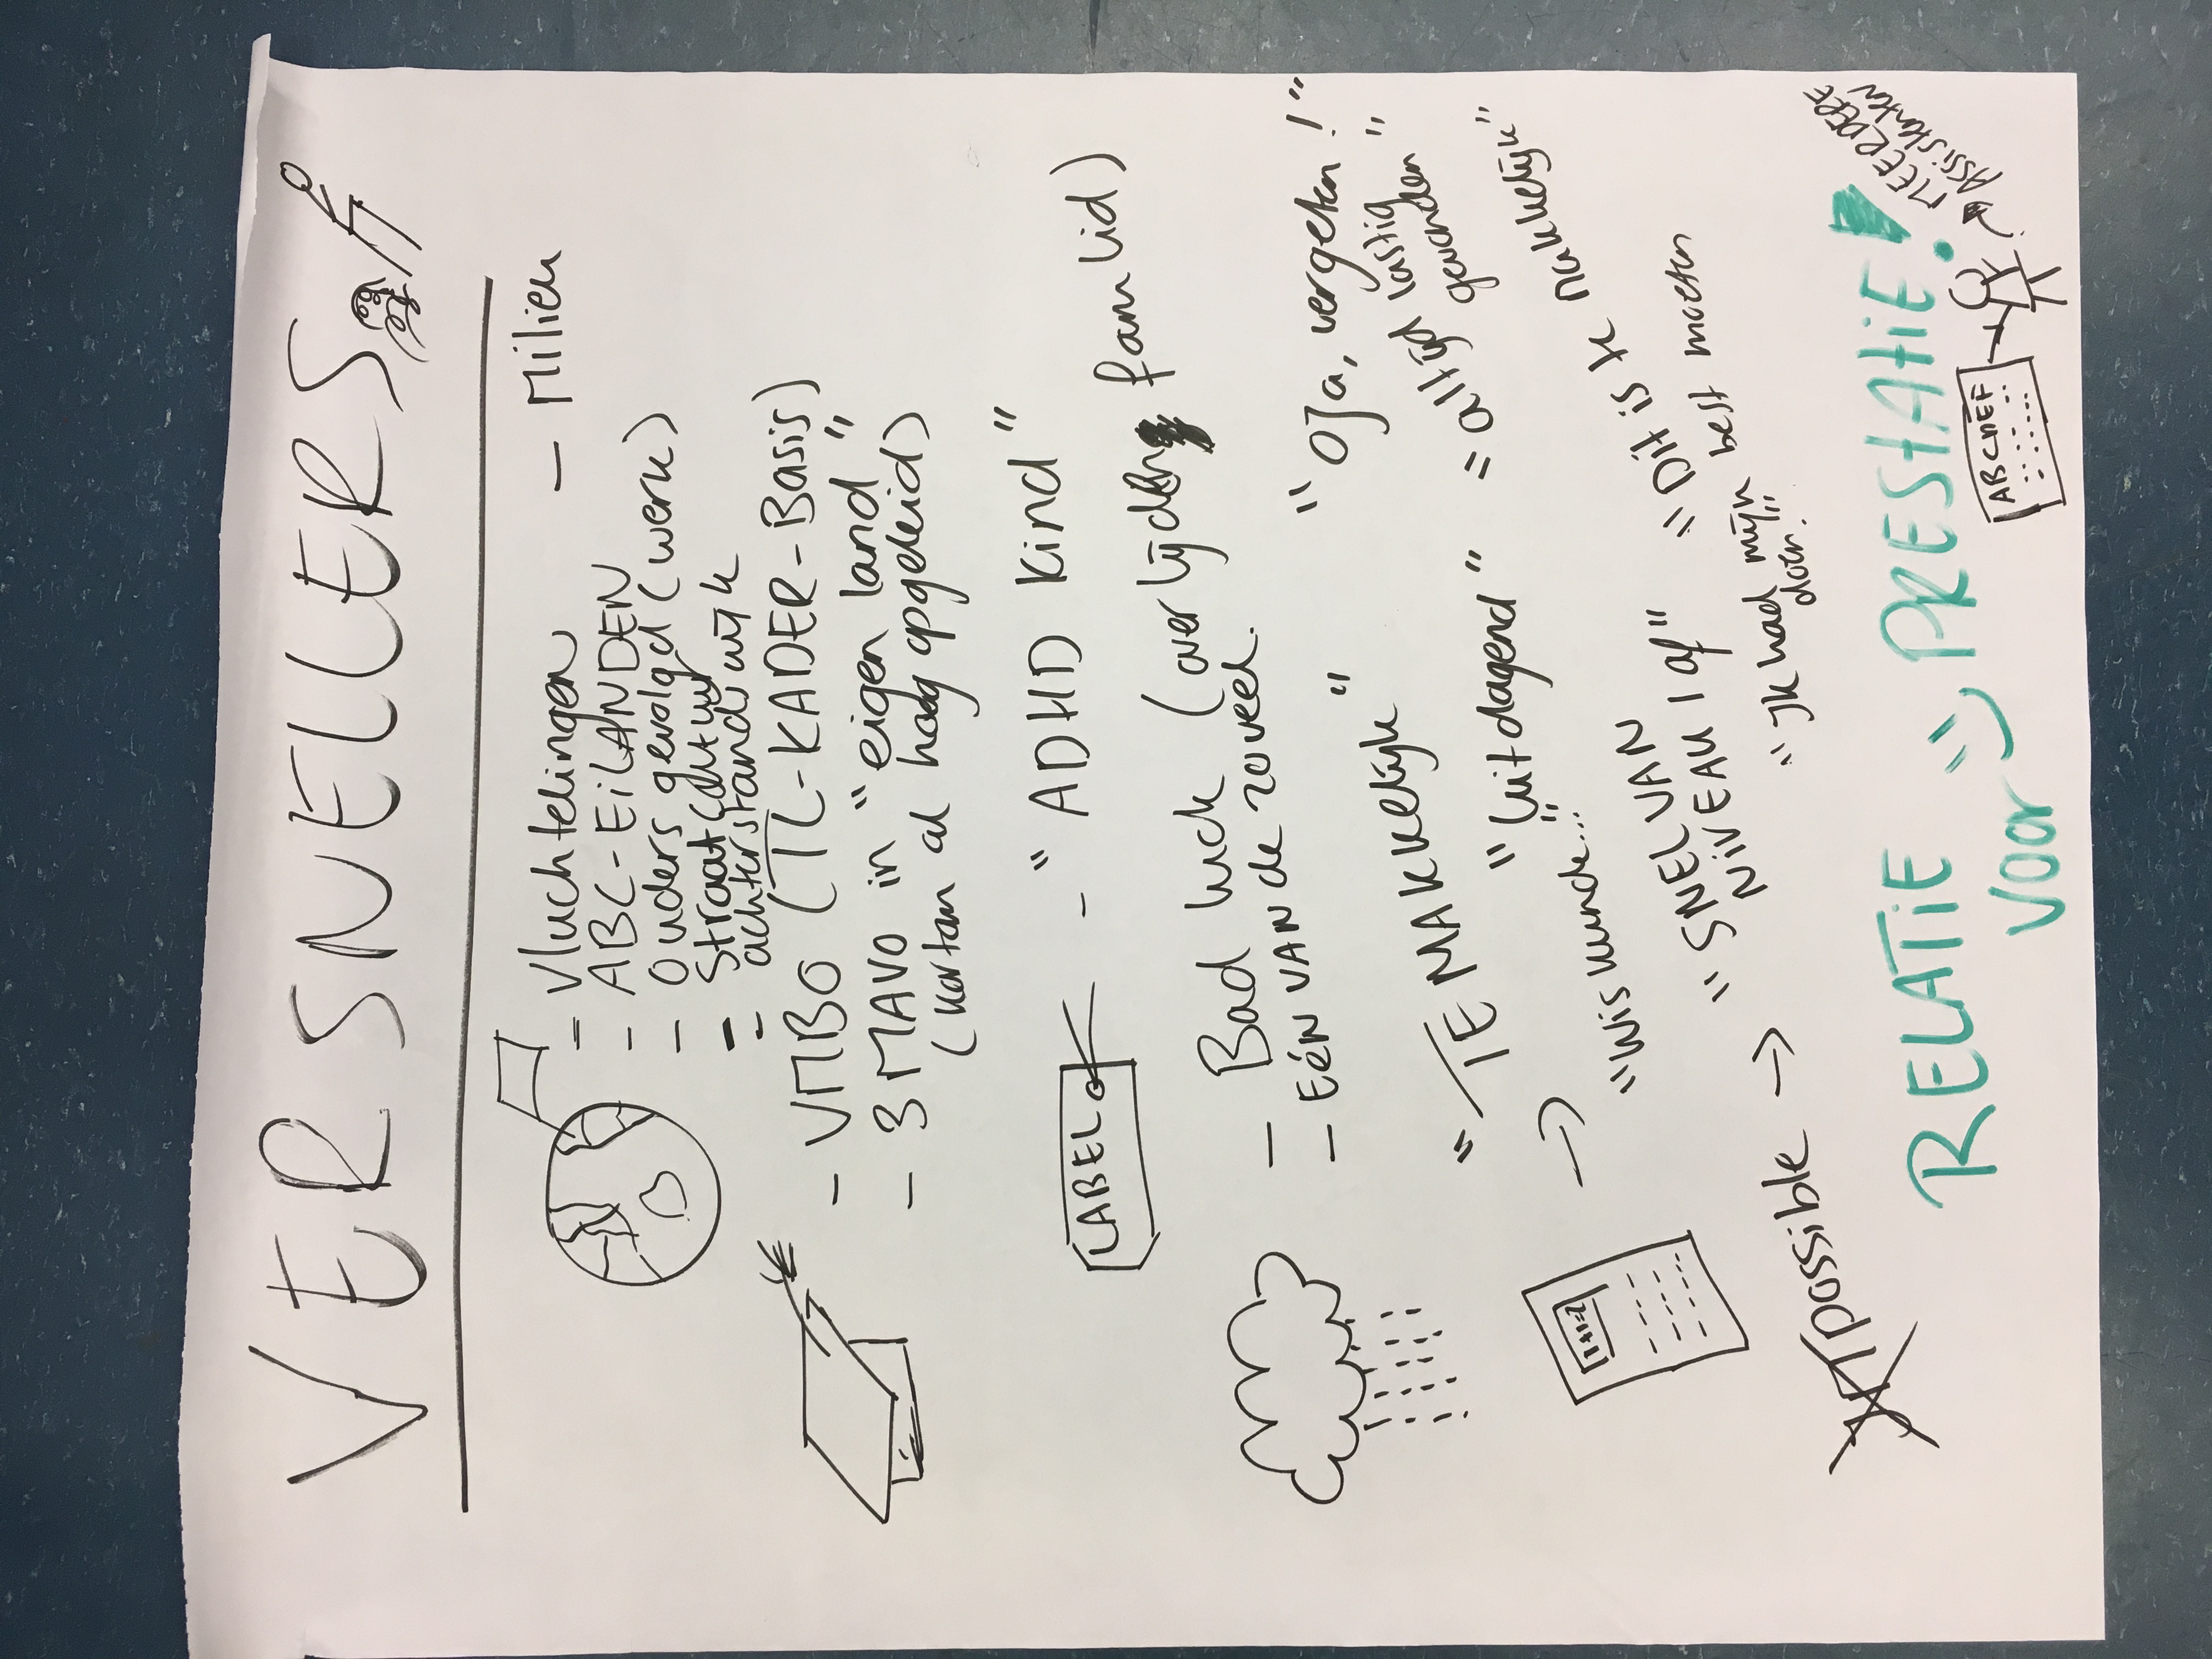 VERSNELLERS
- Vluchtelingen - Milieu
- ABC-EILANDEN
- Ouders gevolgd (werk)
- Straatcultuur
- achterstandswijk
- VMBO (TL-KADER-Basis)
- 3 MAVO in "eigen land"
(kortom al hoog opgeleid)
LABEL - "ADHD kind"
- Bad luck (over lijden fam lid)
- EÉN VAN de zoveel.
"TE MAKKELIJK" "OJa, vergeten!"
→ "Uitdagend" = altijd lastig gevonden"
"Wiskunde..." "Dit is te makkelijk"
"SNEL VAN
NIVEAU 1 af"
"Ik had mijn best moeten
doen."
Impossible →
RELATIE voor PRESTATIE!
ABCDEF
MEERDERE
Assistenten